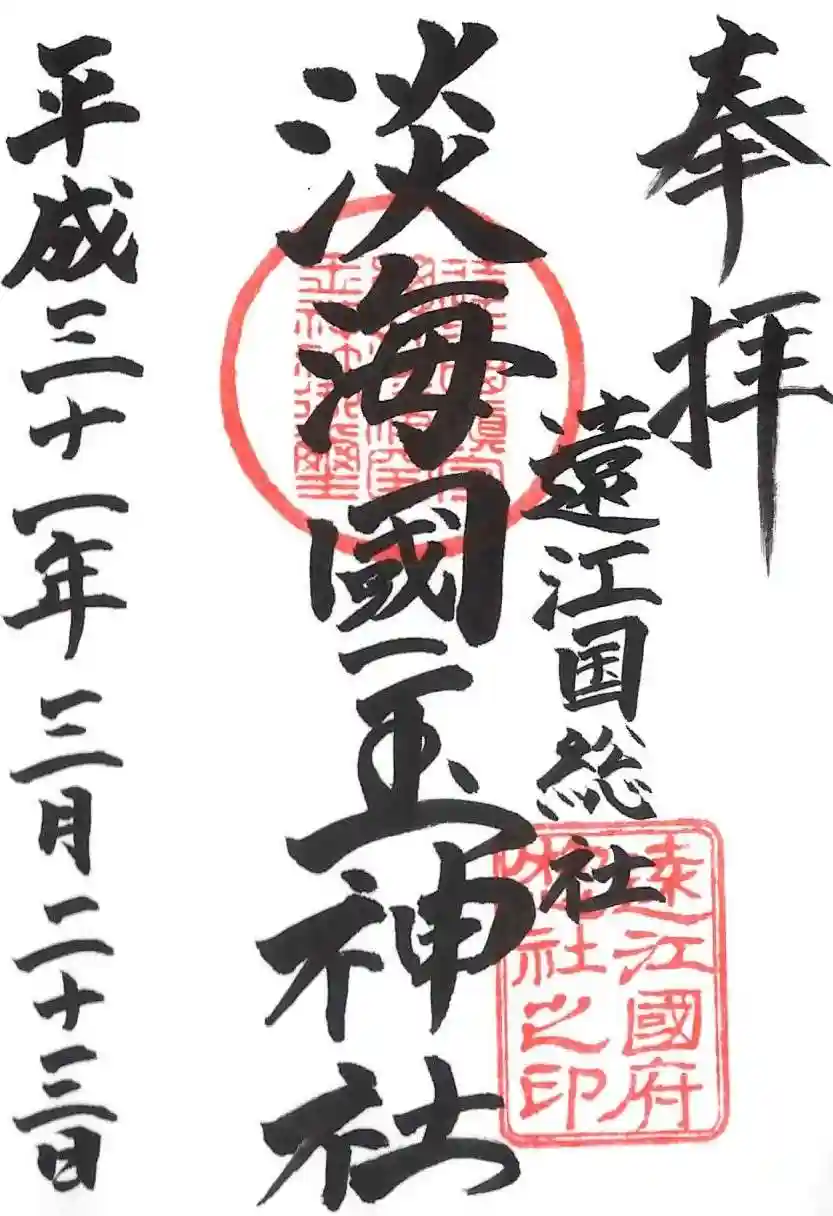 奉拝
遠江国総社
淡海國玉神社
平成三十一年三月二十三日
遠江國府
総社之印